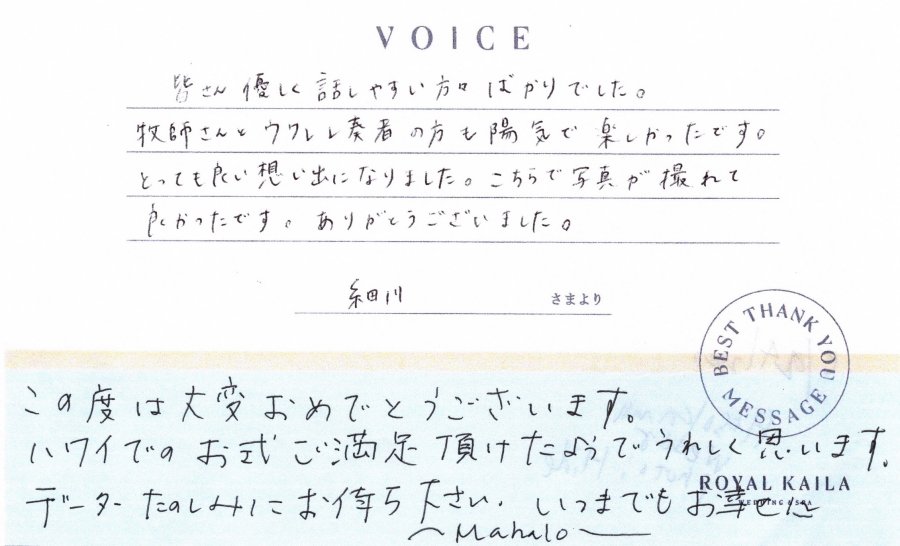 VOICE
皆さん優しく話しやすい方々ばかりでした。
牧師さんとウクレレ奏者の方も陽気で楽しかったです。
とっても良い想い出になりました。こちらで写真が撮れて
良かったです。ありがとうございました。
細川 さまより
BEST THANK YOU MESSAGE
この度は大変おめでとうございます。
ハワイでのお式ご満足頂けたようでうれしく思います。
データーたのしみにお待ち下さい。いつまでもお幸せに
ROYAL KAILA
WEDDING & SPA
~Mahalo~